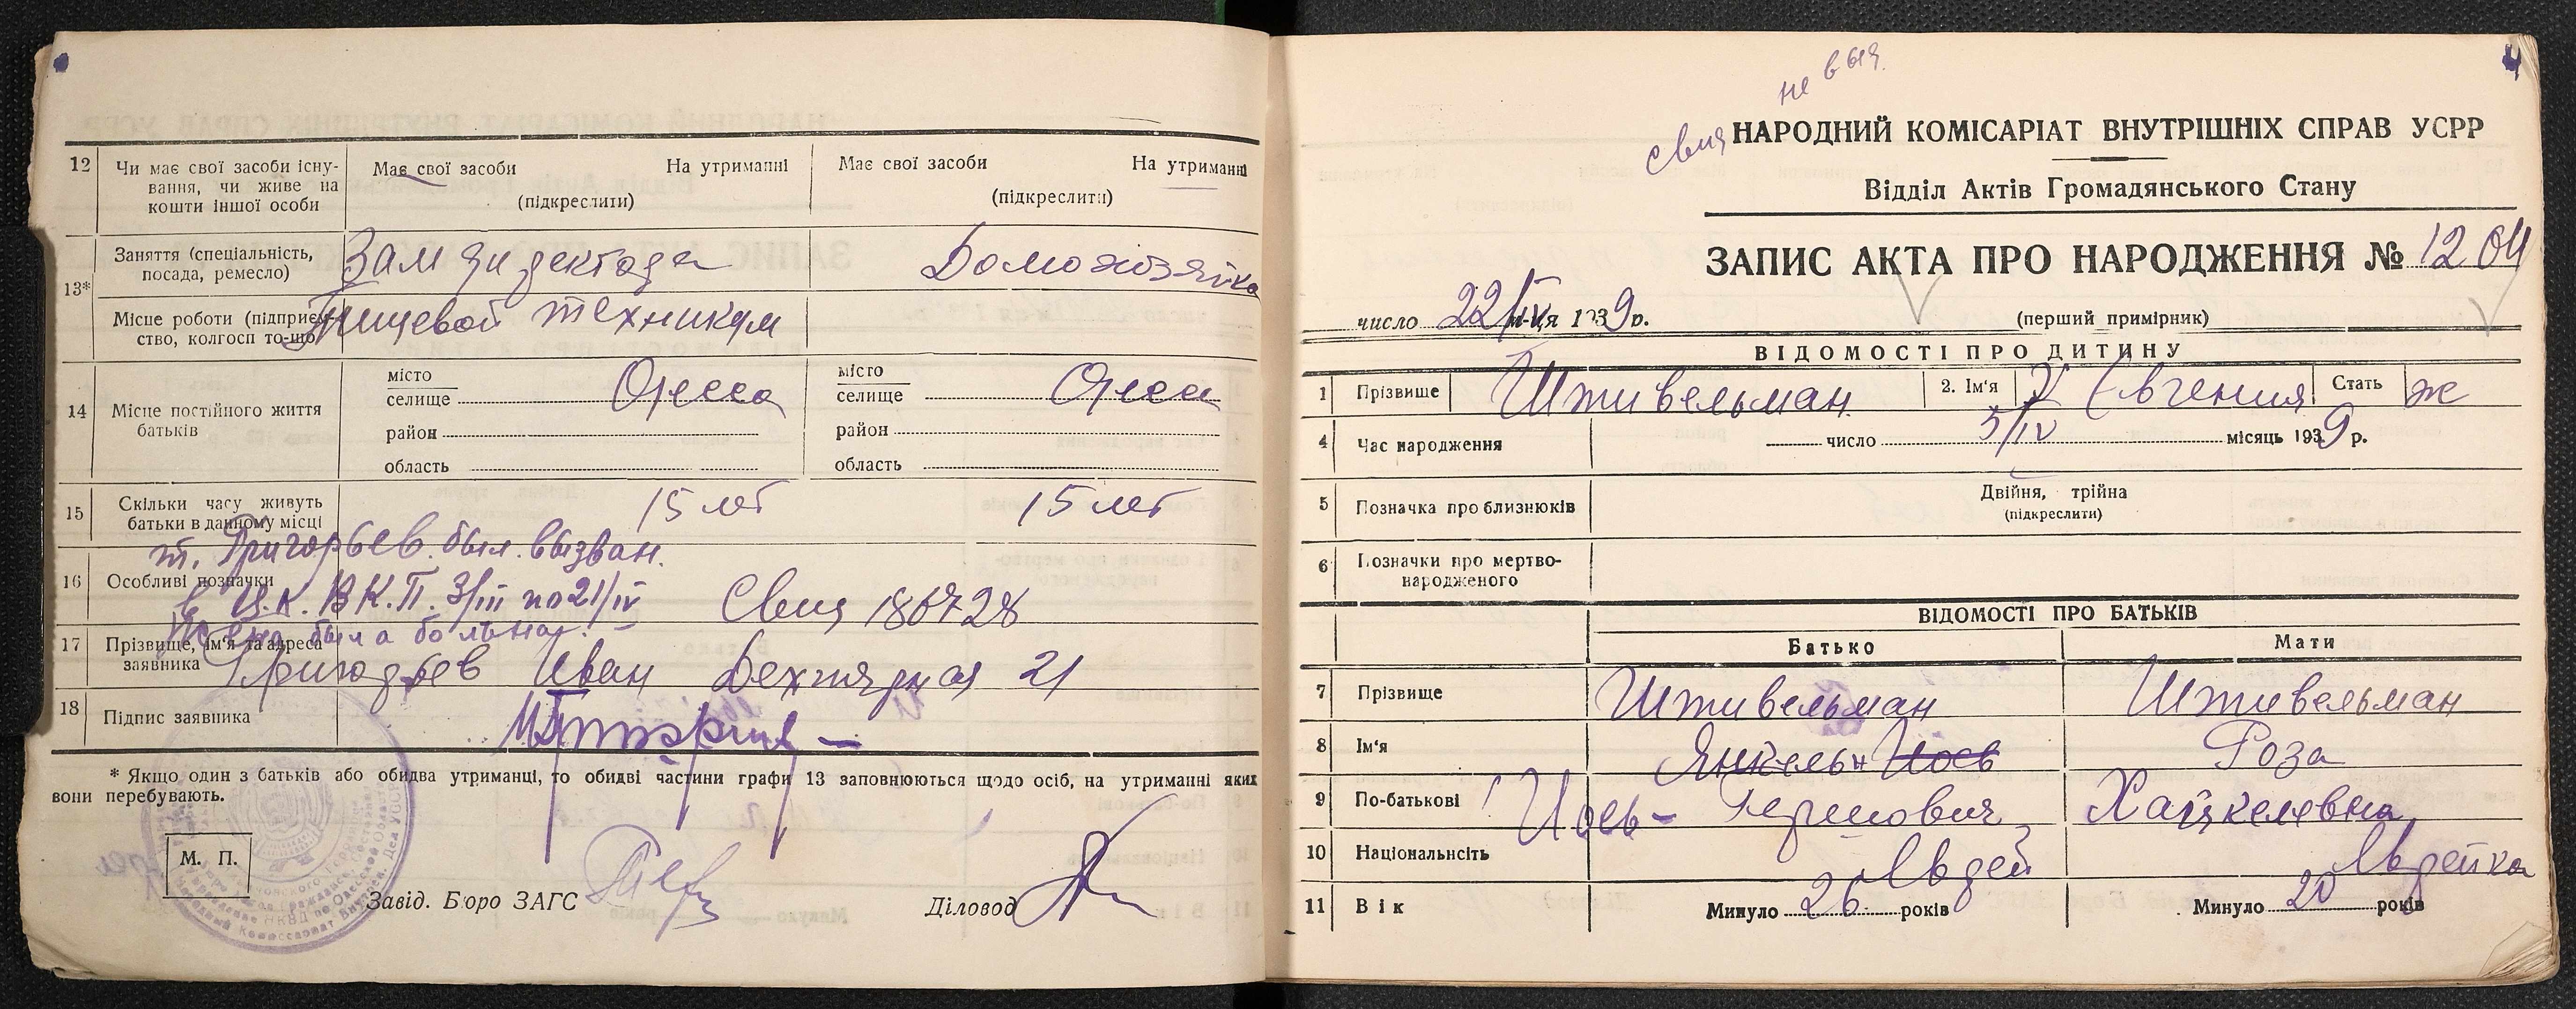 12 Чи має свої засоби існу-
вання, чи живе на
кошти іншої особи
Має свої засоби На утриманні
(підкреслити)
Має свої засоби На утриманні
(підкреслити)
13*
Заняття (спеціальність,
посада, ремесло)
Зам директора
Домохозяйка
Місце роботи (підприєм-
ство, колгосп то-що)
Пищевой техникум
14 Місце постійного життя
батьків
місто
селище Одесса
район
область
місто
селище Одесса
район
область
15 Скільки часу живуть
батьки в данному місці
15 лет 15 лет
т. Григорьев был вызван
16 Особливі позначки
в Ц.К. В.К.П. 3/III по 21/IV
Свид 186728
была больна
17 Прізвище, ім'я та адреса
заявника
Григорьев Иван 21
18 Підпис заявника
* Якщо один з батьків або обидва утриманці, то обидві частини графи 13 заповнюються щодо осіб, на утриманні яких
вони перебувають.
М. П.
Завід. Бюро ЗАГС
Діловод
не выд.
свид
НАРОДНИЙ КОМІСАРІАТ ВНУТРІШНІХ СПРАВ УСРР
Відділ Актів Громадянського Стану
ЗАПИС АКТА ПРО НАРОДЖЕННЯ № 1204
число 22/IV м-ця 1939 р.
(перший примірник)
ВІДОМОСТІ ПРО ДИТИНУ
1 Прізвище Штивельман 2. Ім'я Евгения Стать ж
4 Час народження число 5/IV місяць 1939 р.
5 Позначка про близнюків
Двійня, трійна
(підкреслити)
6 Позначки про мертво-
народженого
ВІДОМОСТІ ПРО БАТЬКІВ
Батько Мати
7 Прізвище Штивельман Штивельман
8 Ім'я Янкель Йось Роза
9 По-батькові Йось- Гершович Хайкелевна
10 Національність Еврей Еврейка
11 Вік Минуло 26 років Минуло 20 років